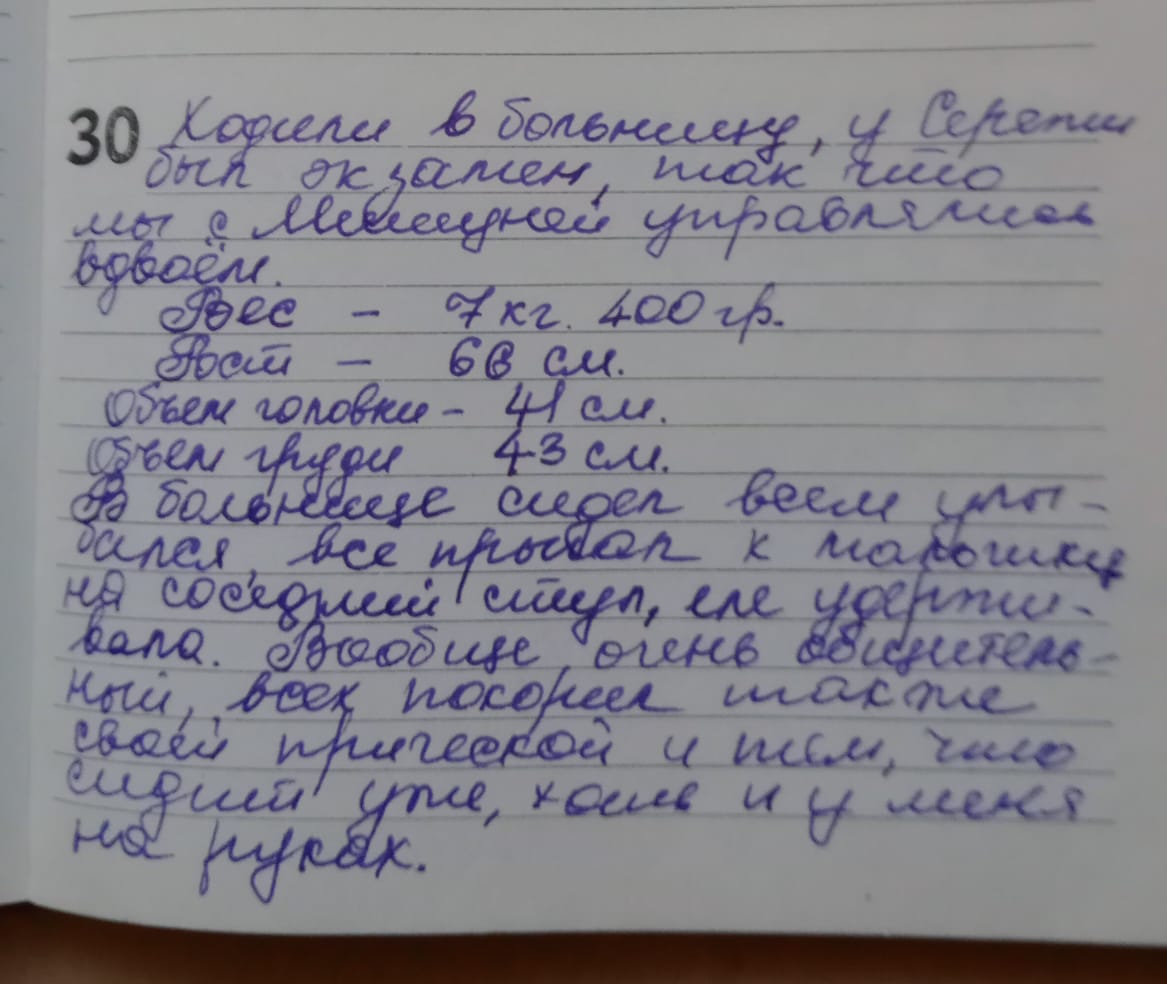 30 Ходили в больницу, у Сережи
был экзамен, так что
мы с Мишуней управлялись
вдвоём.
Вес - 7 кг. 400 гр.
Рост - 66 см.
Объем головки - 41 см.
Объем груди 43 см.
В больнице сидел всем улы-
бался, все прыгал к мальчику
на соседний стул, еле удержи-
вала. Вообще очень общитель-
ный, всех покорил также
своей прической и тем, что
сидит уже, хоть и у меня
на руках.